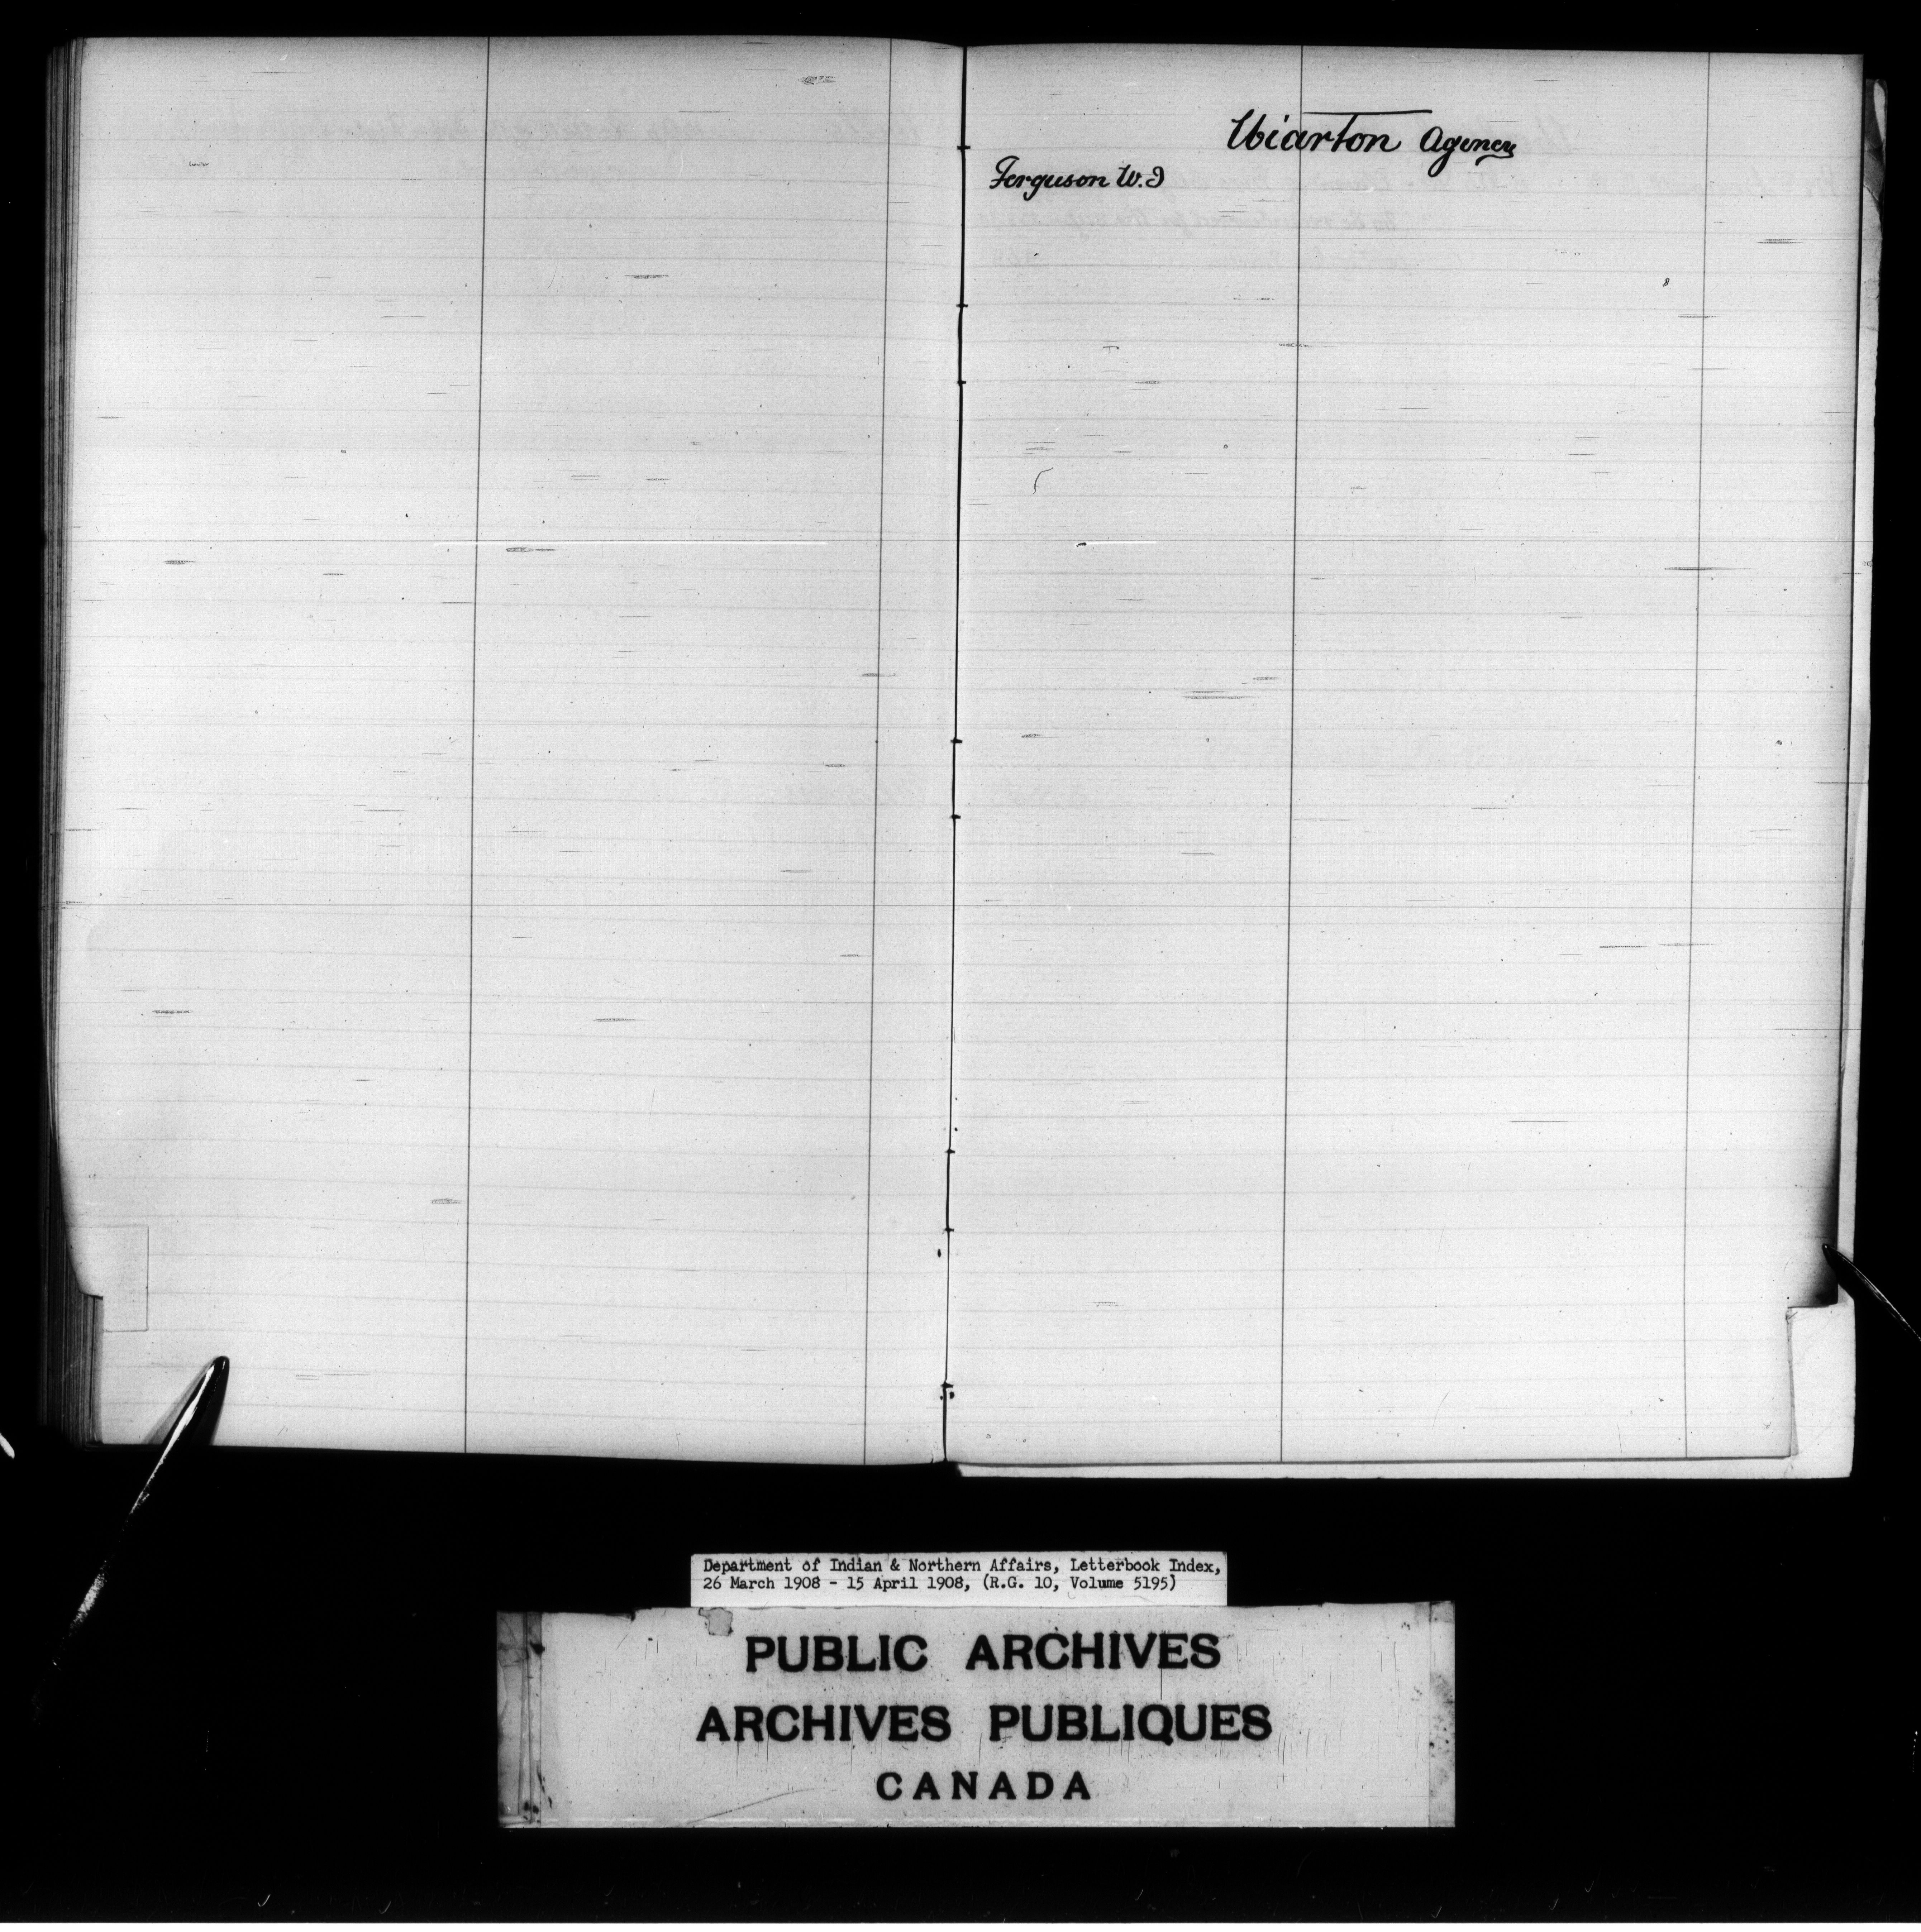 Wiarton Agency
Ferguson W.I
Department of Indian & Northern Affairs, Letterbook Index,
26 March 1908 - 15 April 1908, (R.G. 10, Volume 5195)
PUBLIC ARCHIVES
ARCHIVES PUBLIQUES
CANADA